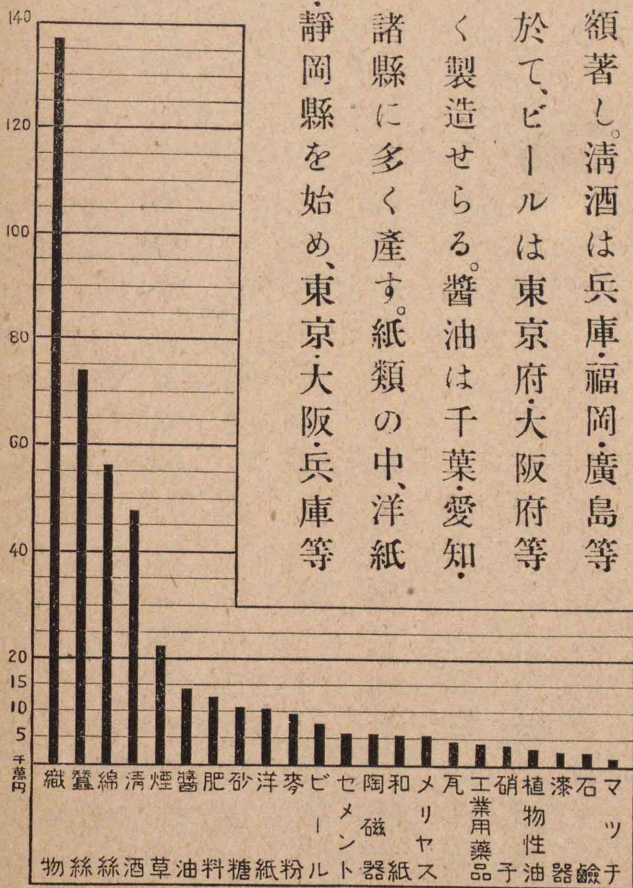 額著し。淸酒は兵庫・福岡・廣島等
於て、ビールは東京府・大阪府等
く製造せらる。醬油は千葉・愛知・
諸縣に多く產す。紙類の中、洋紙
靜岡縣を始め、東京・大阪・兵庫等
140
120
100
80
60
40
20
15
10
5
千萬円
織物
蠶絲
綿絲
淸酒
煙草
醬油
肥料
砂糖
洋紙
麥粉
ビール
セメント
陶磁器
和紙
メリヤス
瓦
工業用藥品
硝子
植物性油
漆器
石鹼
マッチ